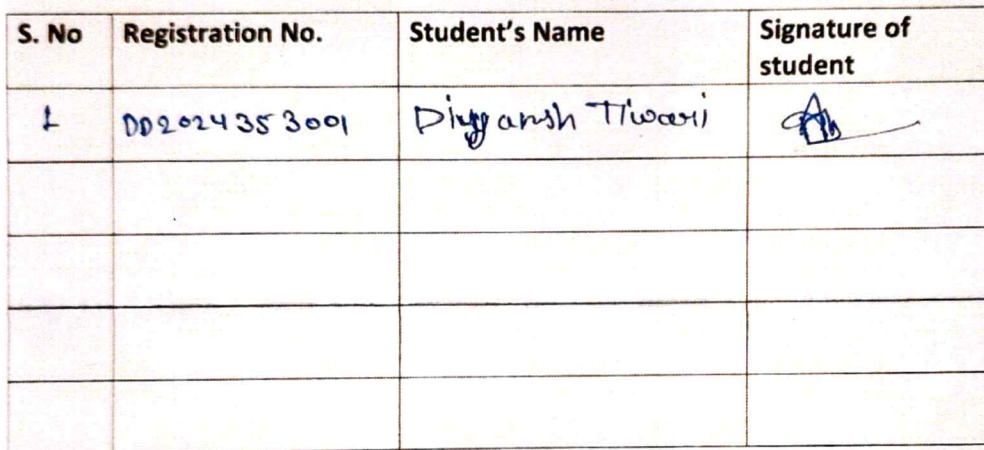 S. No Registration No. Student's Name Signature of student
1 DD2024353001 Divyansh Tiwari